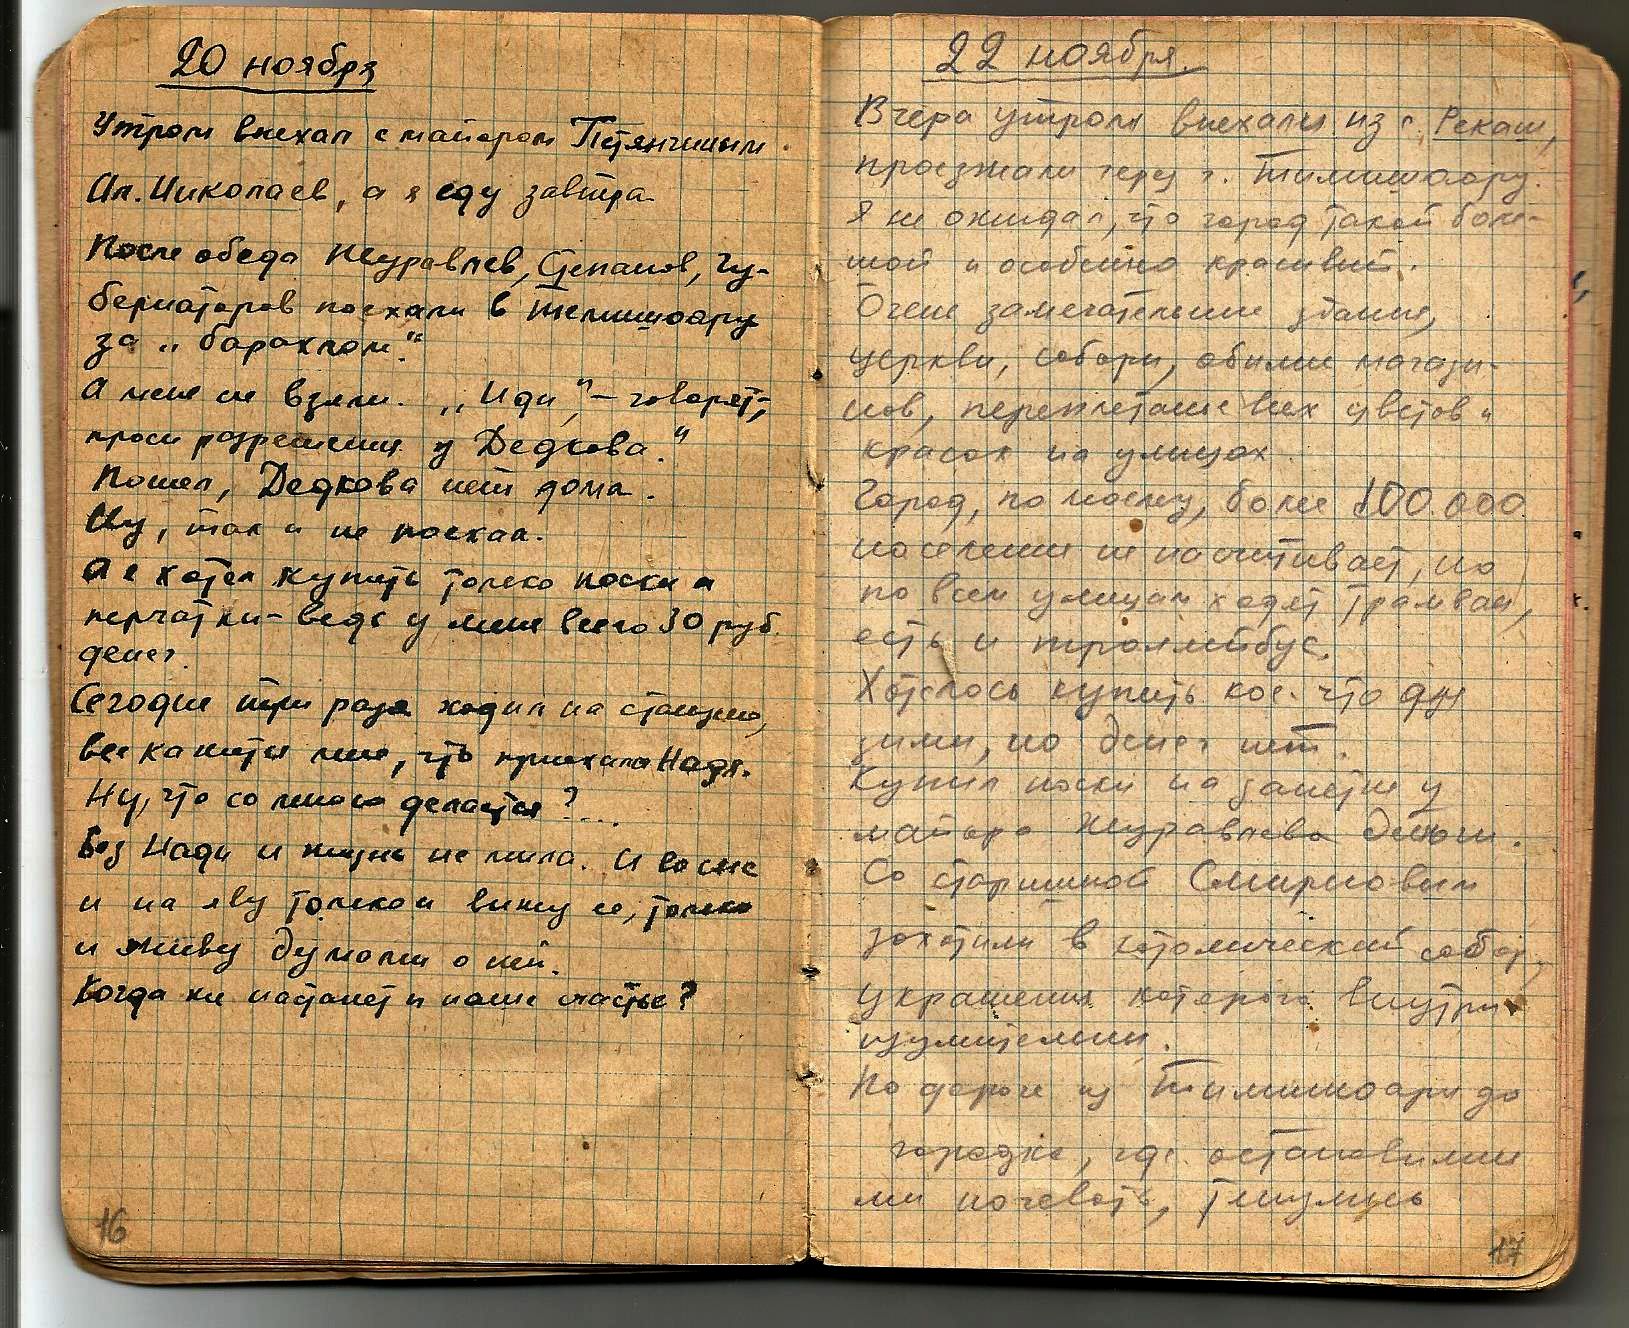 20 ноября
Утром выехал с майором Петянчиным
Ал. Николаев, а я еду завтра.
После обеда Журавлев, Степанов, Гу-
бернаторов поехали в Темишоару
за „барахлом."
А меня не взяли. „Иди", – говорят,
проси разрешения у Дедкова."
Пошел, Дедкова нет дома.
Ну, так и не поехал.
А я хотел купить только носки и
перчатки – ведь у меня всего 30 руб.
денег.
Сегодня три раза ходил на станцию,
все кажится мне, что приехала Надя.
Ну, что со мною делается?...
Без Нади и жизнь не мила. И во сне
и на яву только и вижу ее, только
и живу думами о ней.
Когда же настанет и наше счастье?
16
22 ноября.
Вчера утром выехали из с. Рекаш,
проезжали через г. Тимишоару.
Я не ожидал, что город такой боль-
шой и особенно красивый.
Очень замечательные здания,
церкви, соборы, обилие магази-
нов, переплетание всех цветов и
красок на улицах.
Город, по моему, более 100.000
населения не насчитывает, но
по всем улицам ходят трамваи,
есть и троллейбус.
Хотелось купить кое-что для
зимы, но денег нет.
Купил носки на занятые у
майора Журавлева деньги.
Со старшиной Смирновым
заходили в католический собор,
украшения которого внутри
изумительны.
По дороге из Тимишоары до
городка, где остановились
мы ночевать, тянулись
17